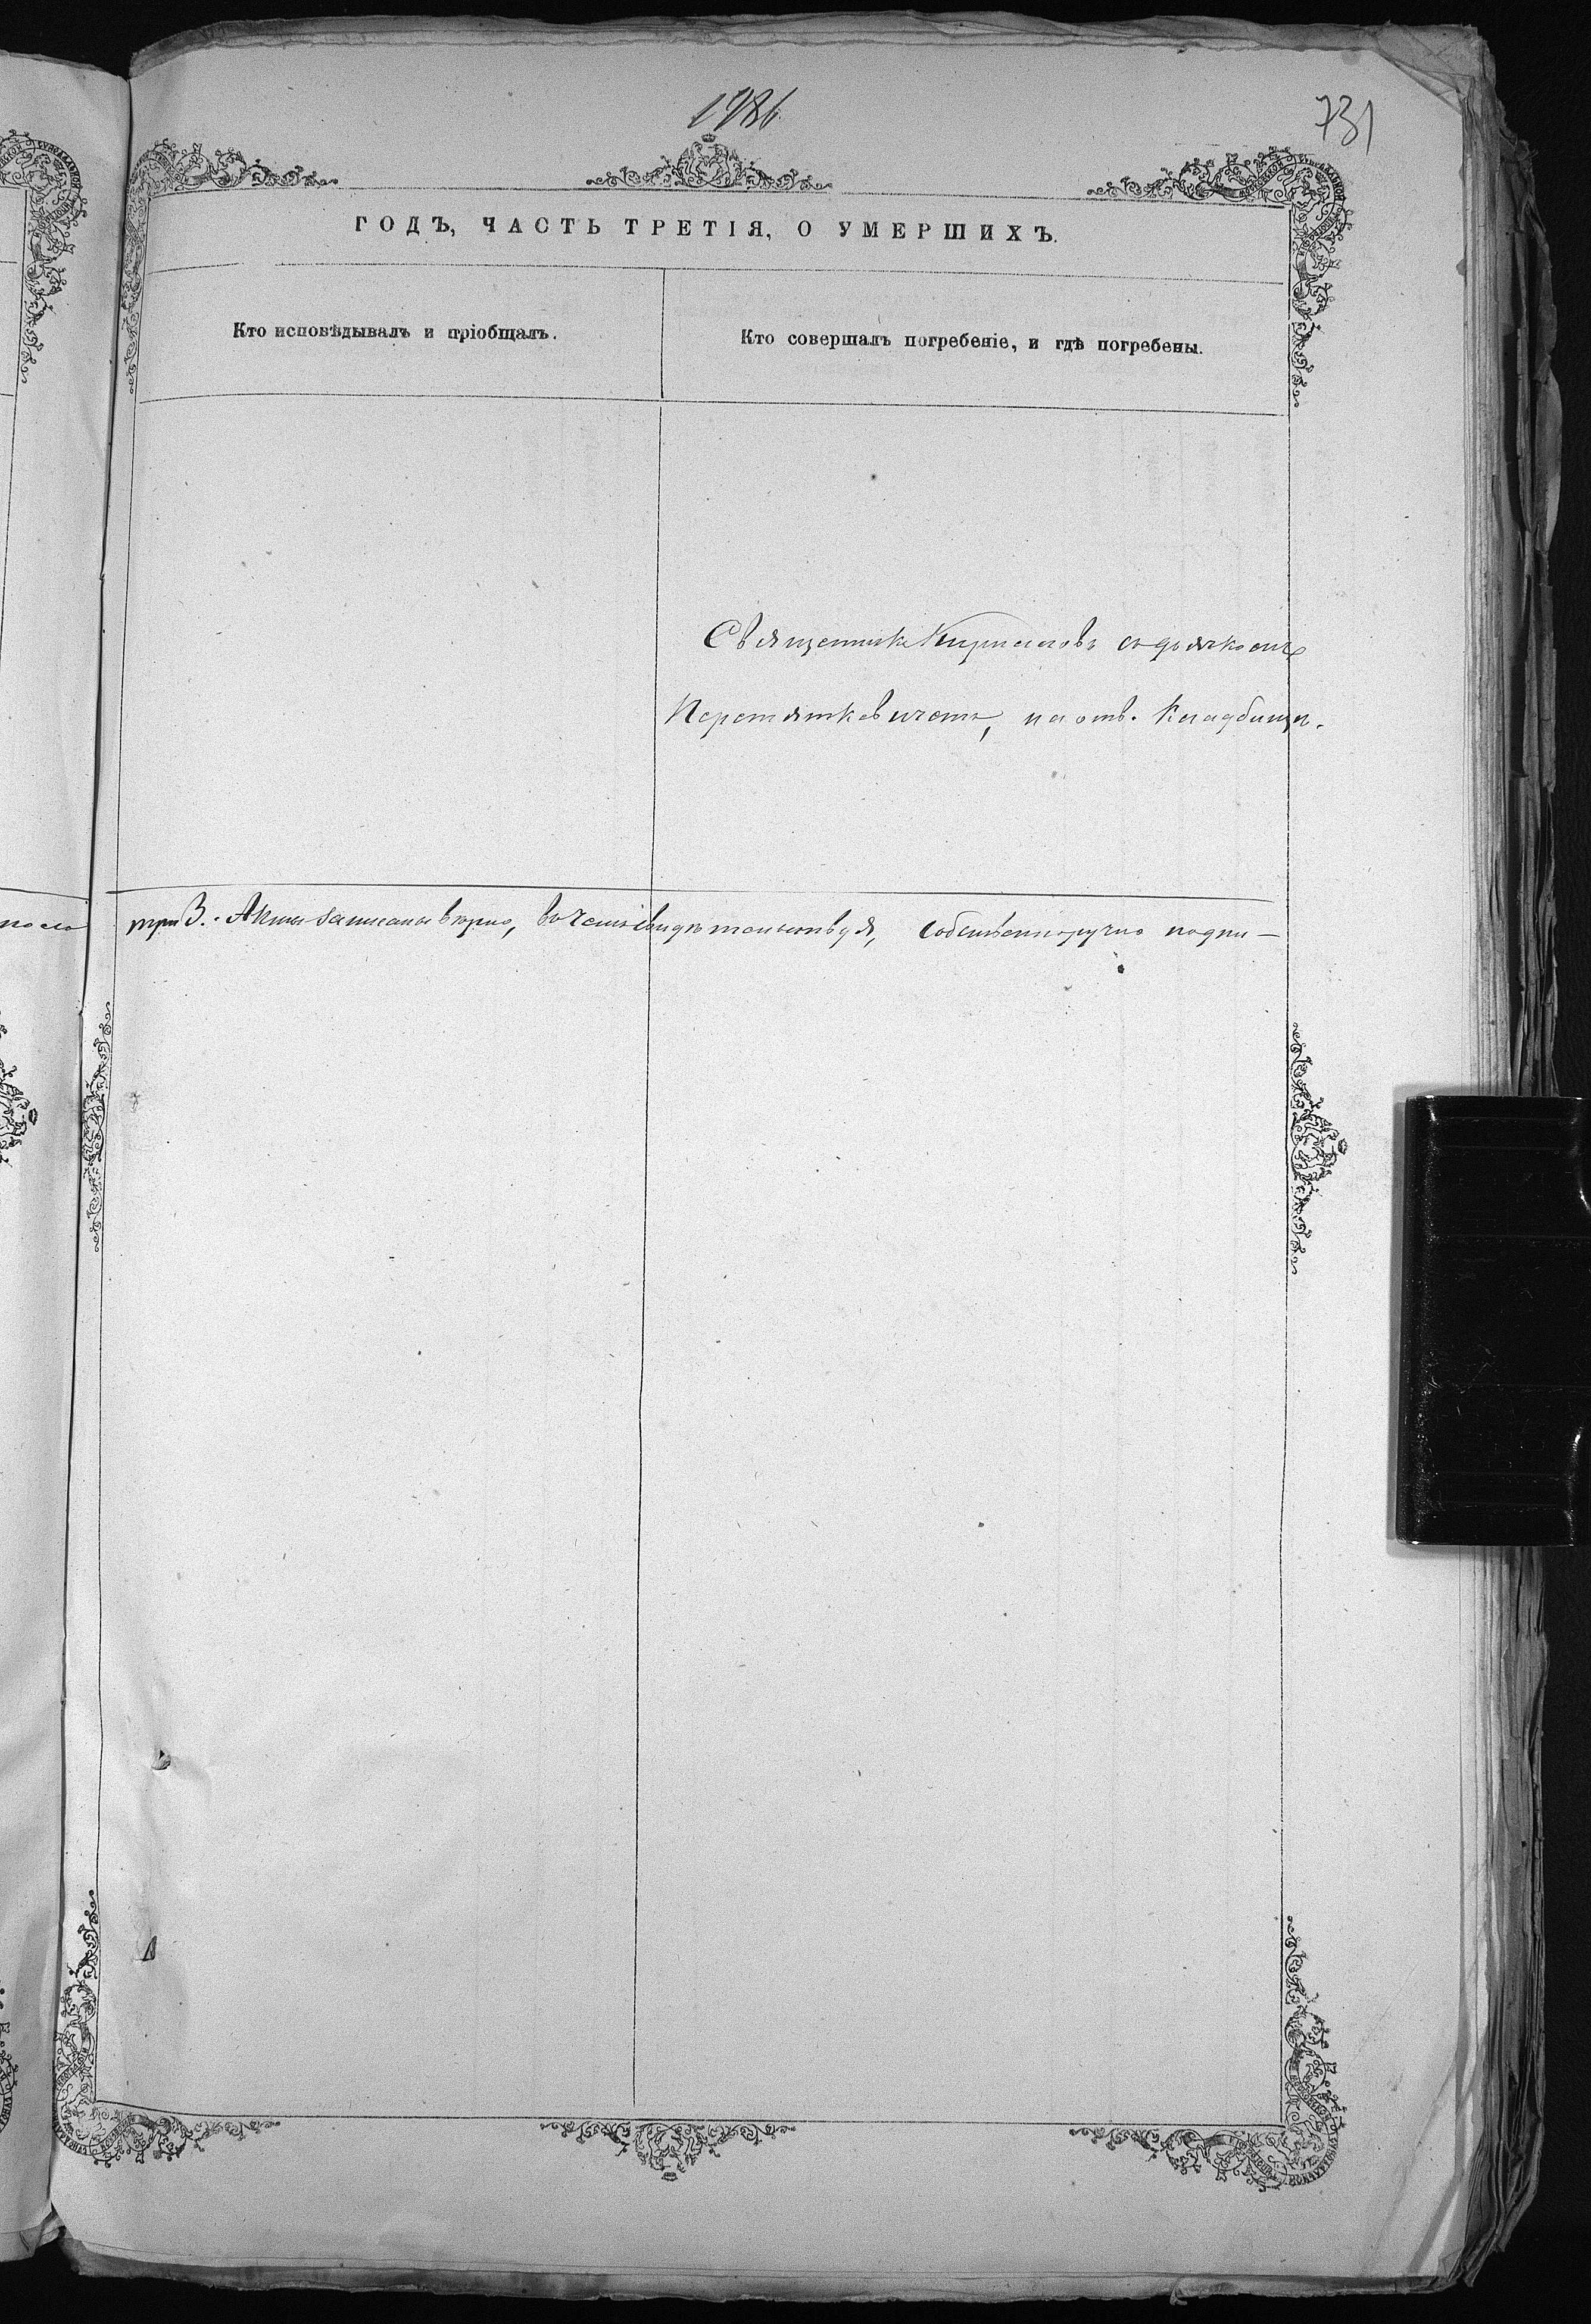 1986
731
ГОДЪ, ЧАСТЬ ТРЕТІЯ, О УМЕРШИХЪ.
Кто исповѣдывалъ и пріобщалъ.
Кто совершалъ погребеніе, и гдѣ погребены.
Священникъ съ дьякомъ
Перетятковичемъ, на отв. кладбищѣ.
три 3. Акты записаны вѣрно, въ чемъ свидѣтельствуя, собственноручно подпи—